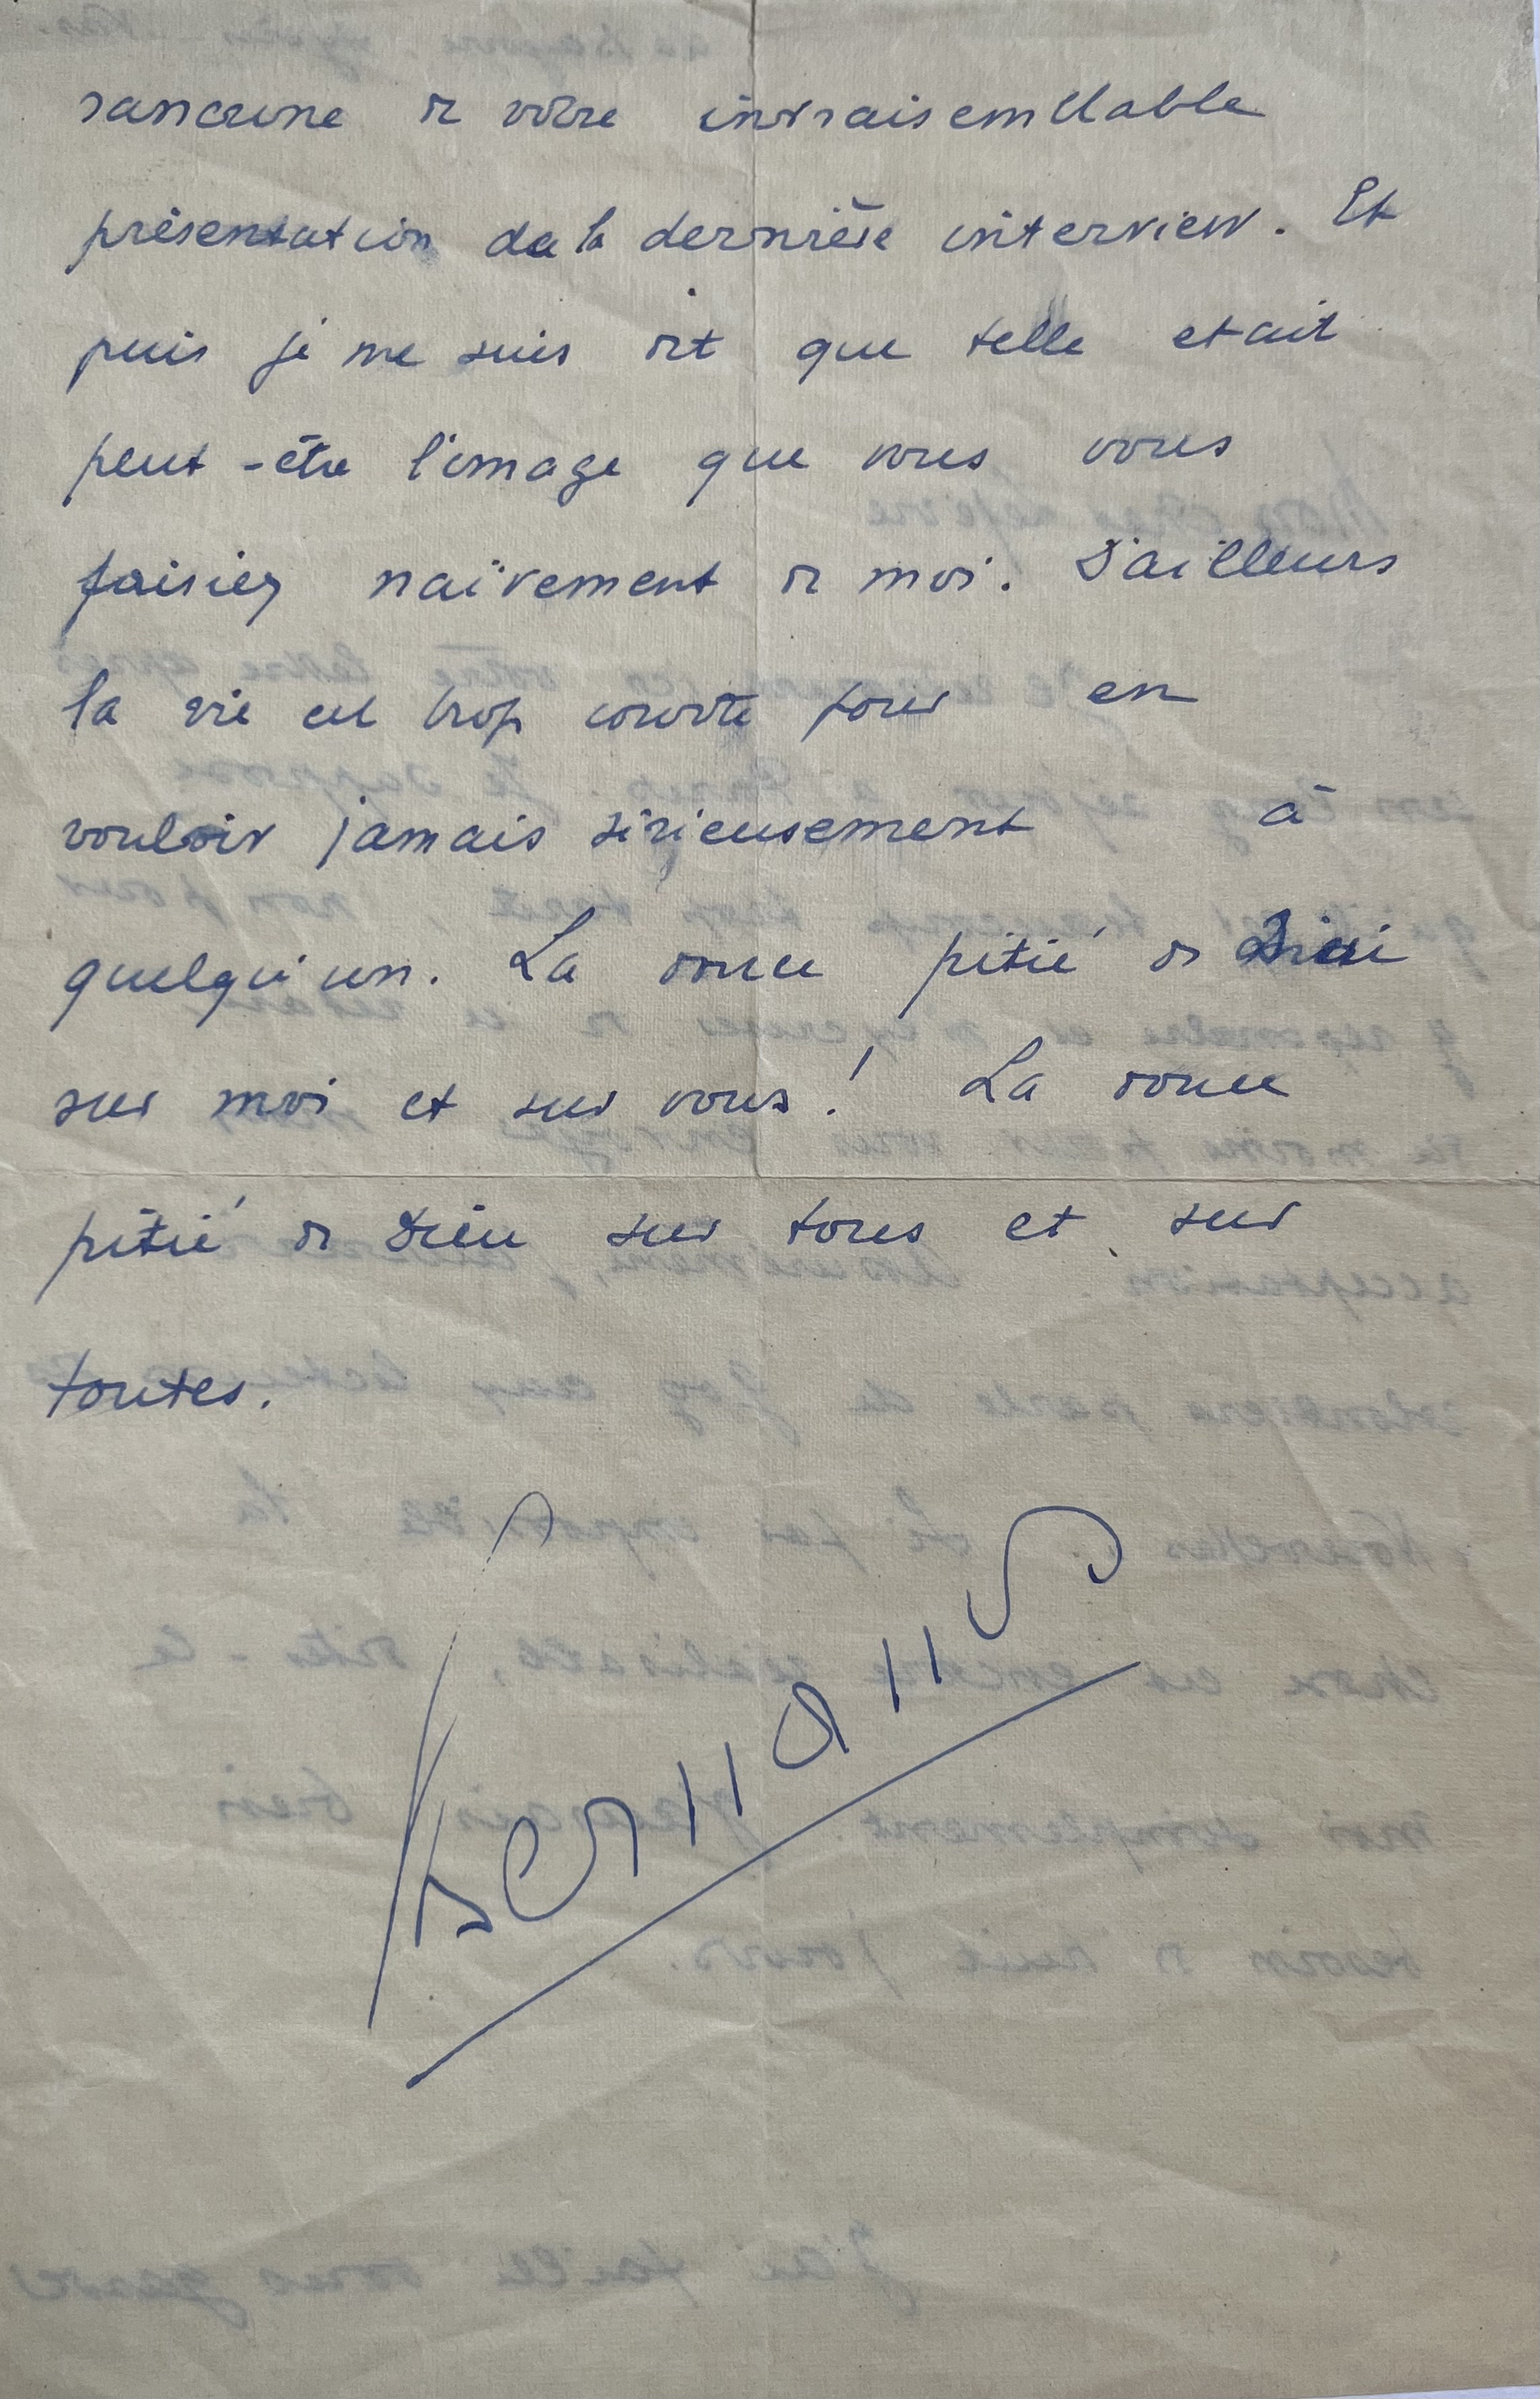 rancune de votre invraisemblable
présentation de la dernière interview. Et
puis je me suis dit que telle etait
peut-être l'image que vous vous
faisiez naïvement de moi. D'ailleurs
la vie est trop courte pour en
vouloir jamais sérieusement à
quelqu'un. La douce pitié de Dieu
sur moi et sur vous ! La douce
pitié de Dieu sur tous et sur
toutes.
Bernanos